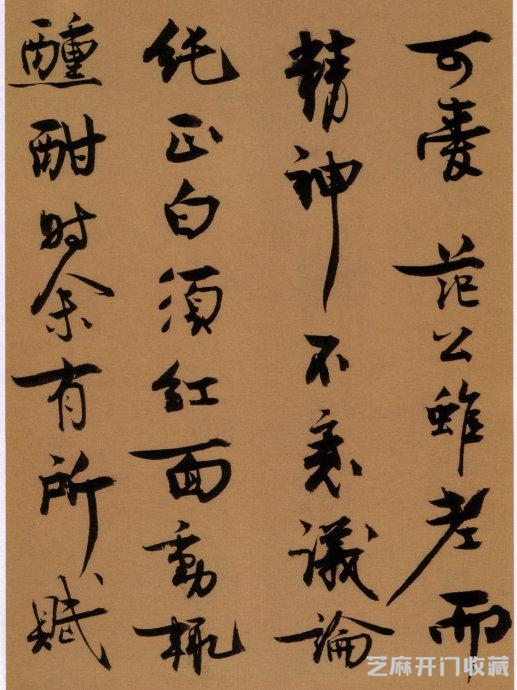 可爱范公虽老而
精神不衰議論
纯正白须红面動輒
醺酣时余有所赋
芝麻开门收藏